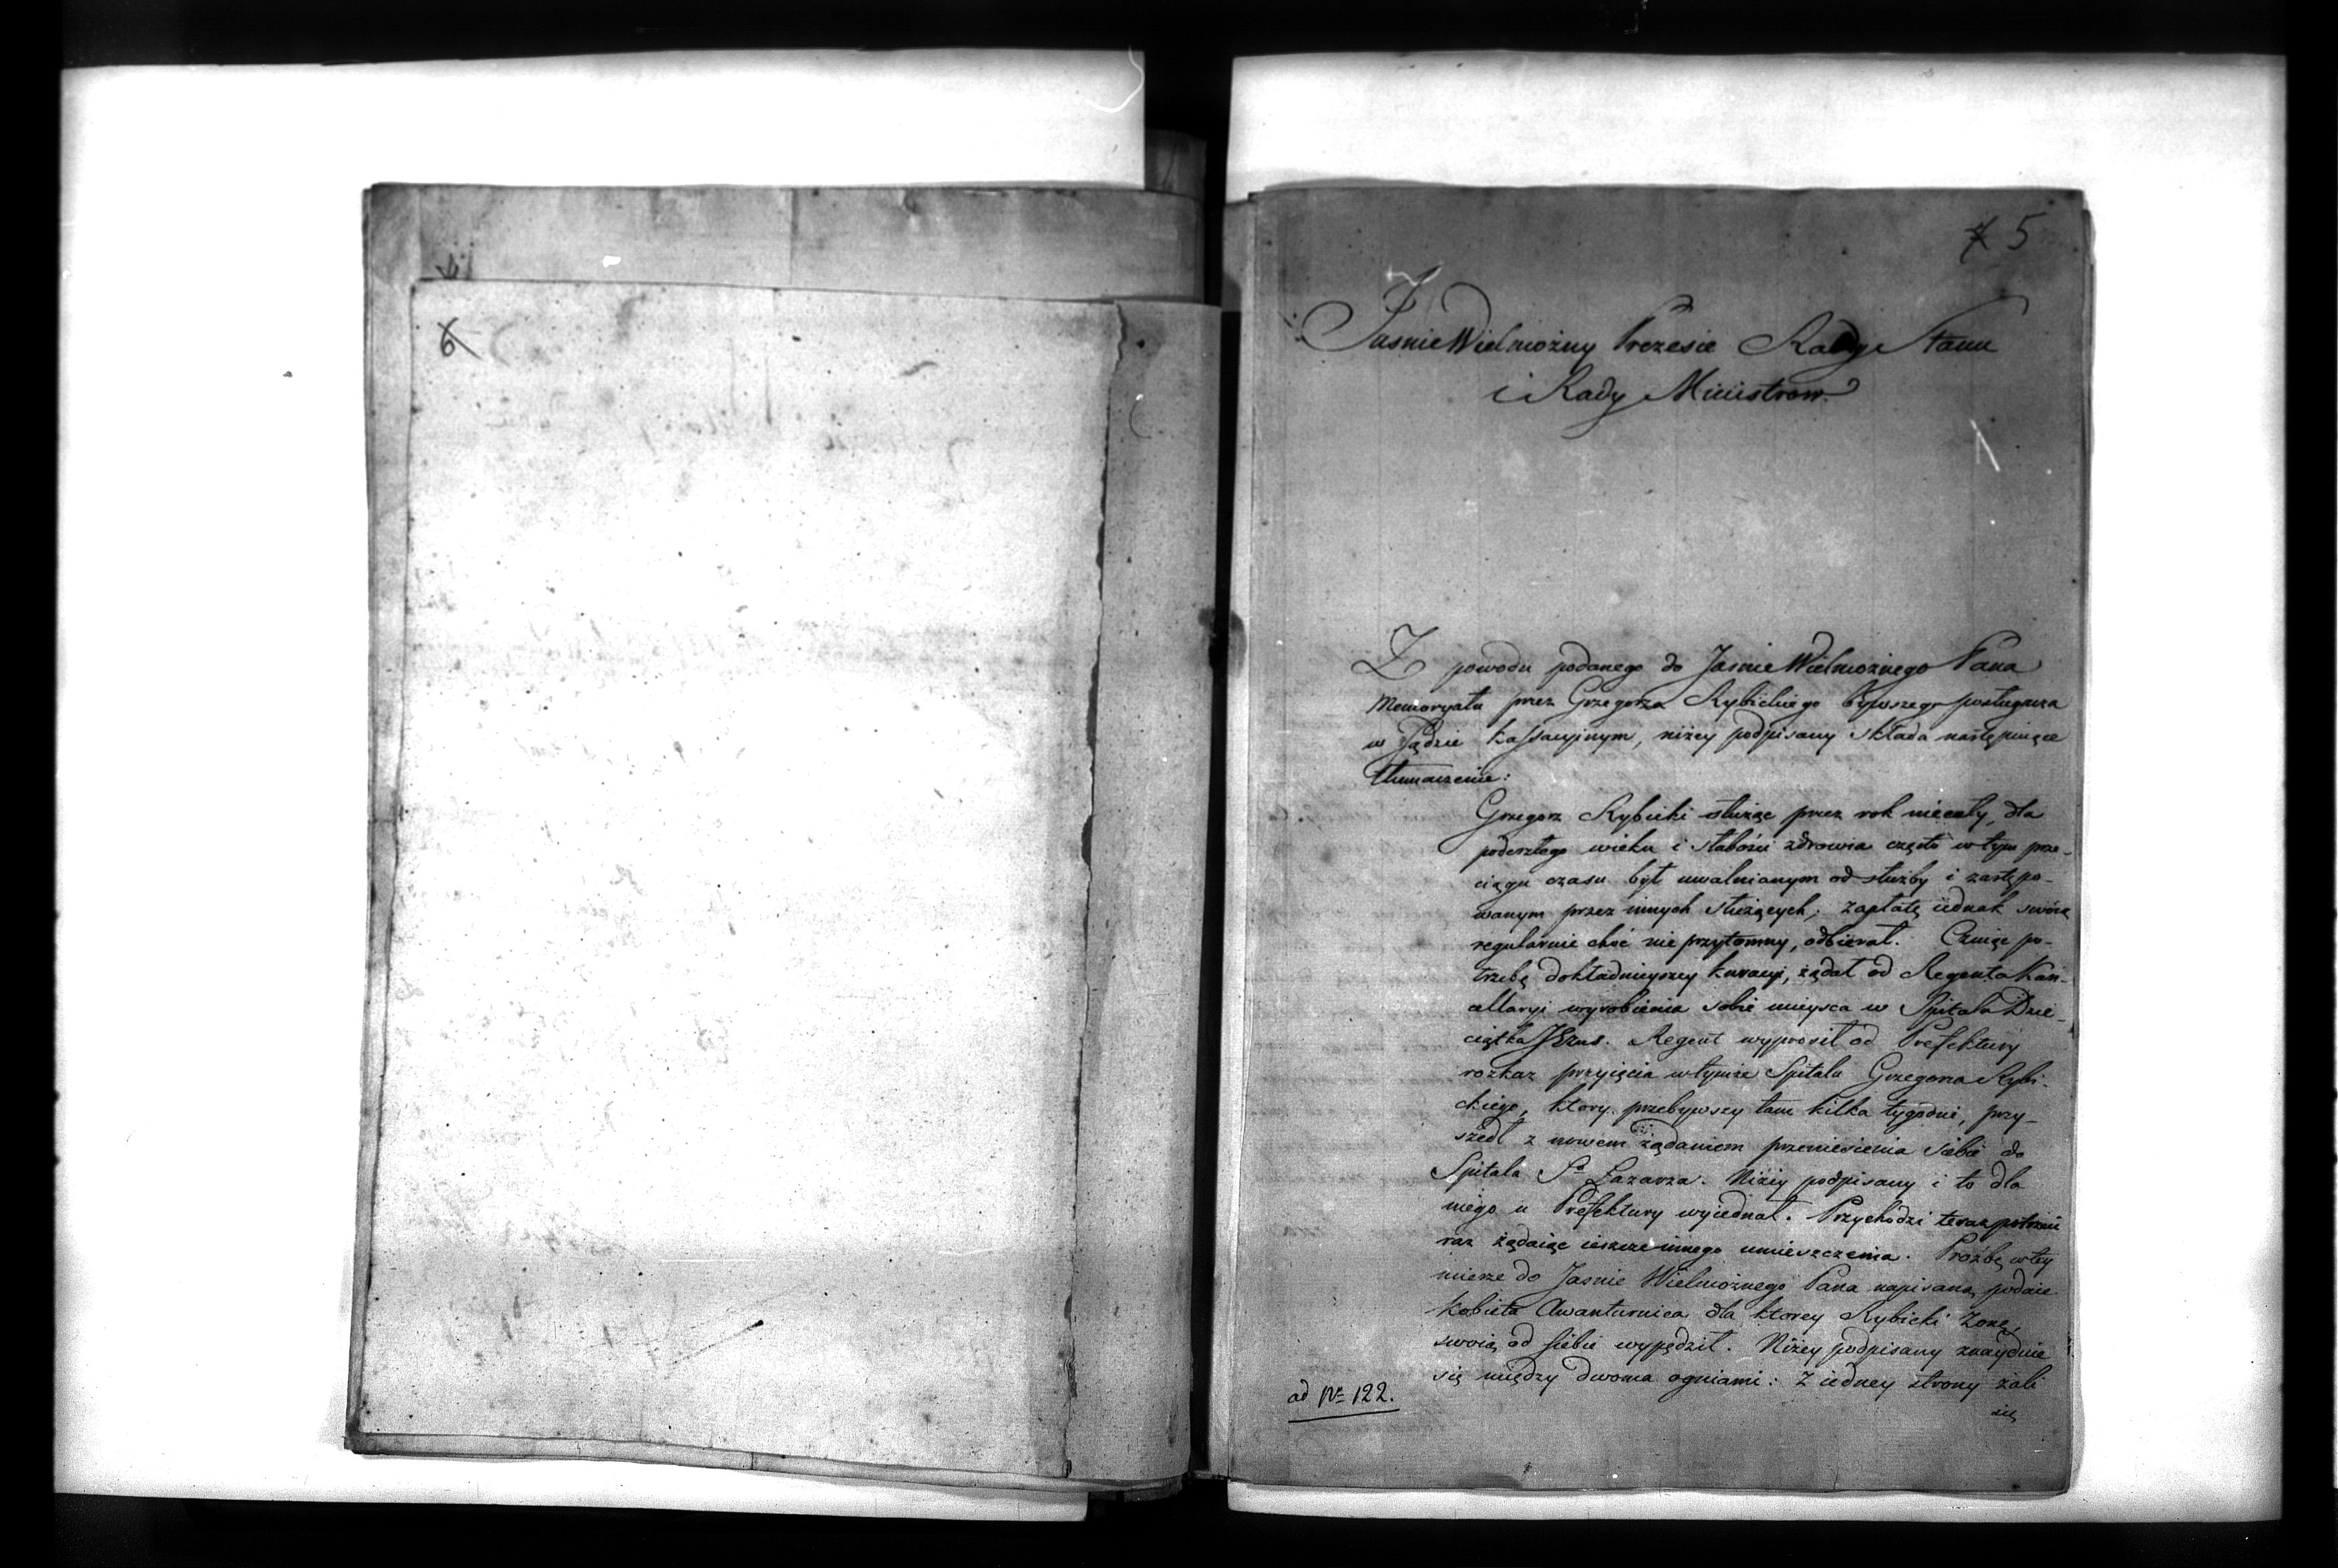 6
5
Jaśnie Wielmożny Prezesie Rady Stanu
i Rady Ministrow.
Z powodu podanego do Jaśnie Wielmożnego Pana
Memoryału przez Grzegorza Rybickiego bywszego posługacza
w Sądzie Kassacyjnym, niżey podpisany składa następuiące
tłumaczenie:
Grzegorz Rybicki służąc przez rok niecały, dla
podeszłego wieku i słabości zdrowia często w tym prze-
ciągu czasu był uwalnianym od służby i zastępo-
wanym przez innych służących; zapłatę iednak swoią
regularnie choć nie przytomny, odbierał. Czuiąc po-
trzebę dokładnieyszey kuracyi, żądał od Regenta Kan-
cellaryi wyrobienia sobie mieysca w Spitalu Dzie-
ciątka JEzus. Regent wyprosił od Prefektury
rozkaz przyięcia w tymże Spitalu Grzegorza Rybi-
ckiego, ktory przebywszy tam kilka tygodni, przy-
szedł z nowem żądaniem przeniesienia siebie do
Spitala Sgo Łazarza. Niżey podpisany i to dla
niego u Prefektury wyiednał. Przychodzi teraz potrzeci
raz żądaiąc ieszcze innego umieszczenia. Proźbę w tey
mierze do Jaśnie Wielmożnego Pana napisaną podaie
kobieta Awanturnica dla ktorey Rybicki Zonę
swoią od siebie wypędził. Niżey podpisany znayduie
się między dwoma ogniami: z iedney strony żali
się
ad Nr 122.